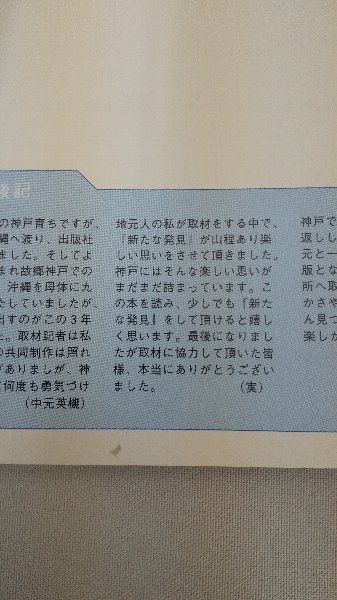 後記
の神戸育ちですが、
縄へ渡り、出版社
ました。そしてよ
まれ故郷神戸での
沖縄を母体に九
たしていましたが、
出すのがこの３年
た。取材記者は私
の共同制作は照れ
がありましたが、神
に何度も勇気づけ
（中元英機）
地元人の私が取材をする中で、
『新たな発見』が山程あり楽
しい思いをさせて頂きました。
神戸にはそんな楽しい思いが
まだまだ詰まっています。こ
の本を読み、少しでも『新た
な発見』をして頂けると嬉し
く思います。最後になりまし
たが取材に協力して頂いた皆
様、本当にありがとうござい
ました。（実）
神戸で
返しし
元と一
版とな
所へ取
かさや
ん見つ
楽しか